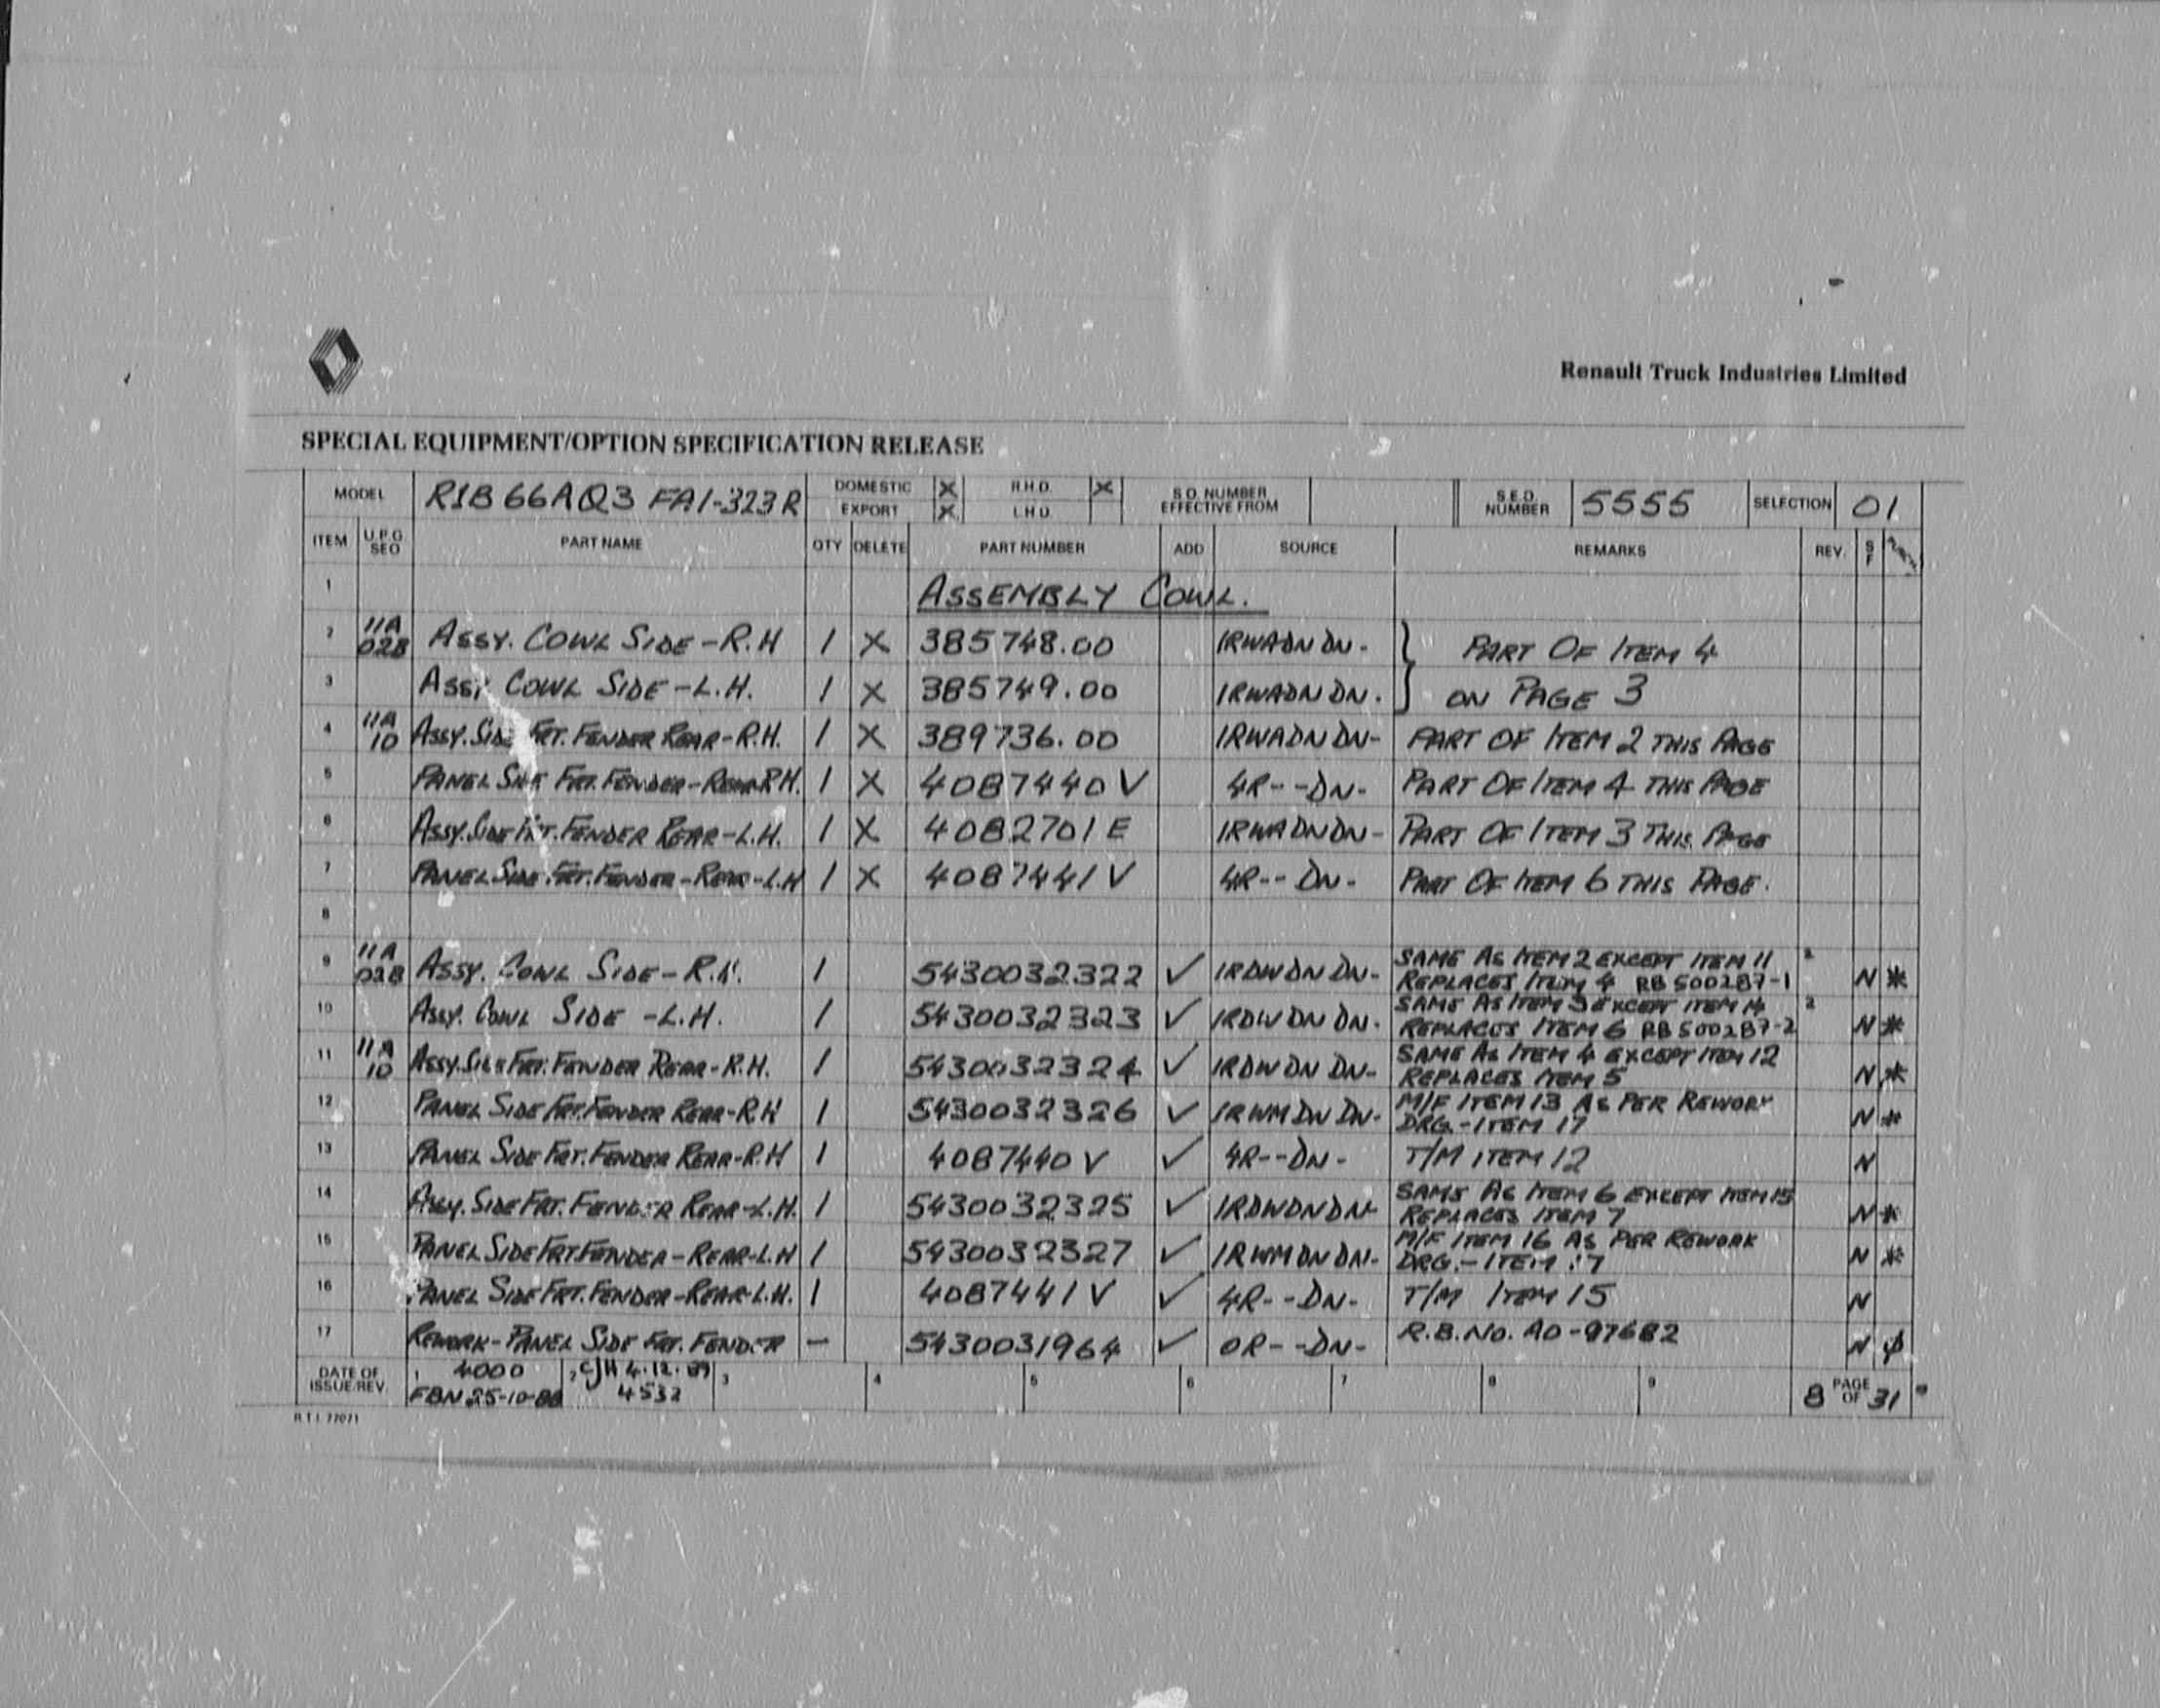 Renault Truck Industries Limited
SPECIAL EQUIPMENT/OPTION SPECIFICATION RELEASE
MODEL R1B66AQ3 FA1-323R DOMESTIC X R.H.D. X S.O. NUMBER EFFECTIVE FROM S.E.O. NUMBER 5555 SELECTION 01
EXPORT X L.H.D.
ITEM U.P.G. SEO PART NAME QTY DELETE PART NUMBER ADD SOURCE REMARKS REV. S F
1 ASSEMBLY COWL.
2 11A 02B ASSY. COWL SIDE-R.H 1 X 385748.00 1RWADNDN- } PART OF ITEM 4
3 ASSY COWL SIDE-L.H. 1 X 385749.00 1RWADNDN. ON PAGE 3
4 11A 10 ASSY. SIDE FRT. FENDER REAR-R.H. 1 X 389736.00 1RWADNDN- PART OF ITEM 2 THIS PAGE
5 PANEL SIDE FRT. FENDER-REAR R.H. 1 X 4087440V 4R--DN- PART OF ITEM 4 THIS PAGE
6 ASSY. SIDE FRT. FENDER REAR-L.H. 1 X 4082701E 1RWADNDN- PART OF ITEM 3 THIS PAGE
7 PANEL SIDE FRT. FENDER-REAR-L.H 1 X 4087441V 4R--DN- PART OF ITEM 6 THIS PAGE.
8
9 11A 02B ASSY. COWL SIDE-R.H. 1 5430032322 ✓ 1RDWDNDN- SAME AS ITEM 2 EXCEPT ITEM 11 2
REPLACES ITEM 4 RB500287-1 N *
10 ASSY. COWL SIDE-L.H. 1 5430032323 ✓ 1RDWDNDN. SAME AS ITEM 3 EXCEPT ITEM 14 2
REPLACES ITEM 6 RB500287-2 N *
11 11A 10 ASSY. SIDE FRT. FENDER REAR-R.H. 1 5430032324 ✓ 1RDWDNDN- SAME AS ITEM 4 EXCEPT ITEM 12
REPLACES ITEM 5 N *
12 PANEL SIDE FRT. FENDER REAR-R.H 1 5430032326 ✓ 1RWMDNDN- M/F ITEM 13 AS PER REWORK
DRG.-ITEM 17 N *
13 PANEL SIDE FRT. FENDER REAR-R.H 1 4087440V ✓ 4R--DN- T/M ITEM 12 N
14 ASSY. SIDE FRT. FENDER REAR-L.H. 1 5430032325 ✓ 1RDWDNDN- SAME AS ITEM 6 EXCEPT ITEM 15
REPLACES ITEM 7 N *
15 PANEL SIDE FRT FENDER-REAR-L.H 1 5430032327 ✓ 1RWMDNDN- M/F ITEM 16 AS PER REWORK
DRG.-ITEM 17 N *
16 PANEL SIDE FRT. FENDER-REAR-L.H. 1 4087441V ✓ 4R--DN- T/M ITEM 15 N
17 REWORK-PANEL SIDE FRT. FENDER - 5430031964 ✓ 0R--DN- R.B. NO. AO-97682 N ∅
DATE OF ISSUE/REV. 1 4000 2 CJH 4.12.89 3 4 5 6 7 8 9 8 PAGE OF 31
FBN 25-10-88 4532
R.T.I. 77071